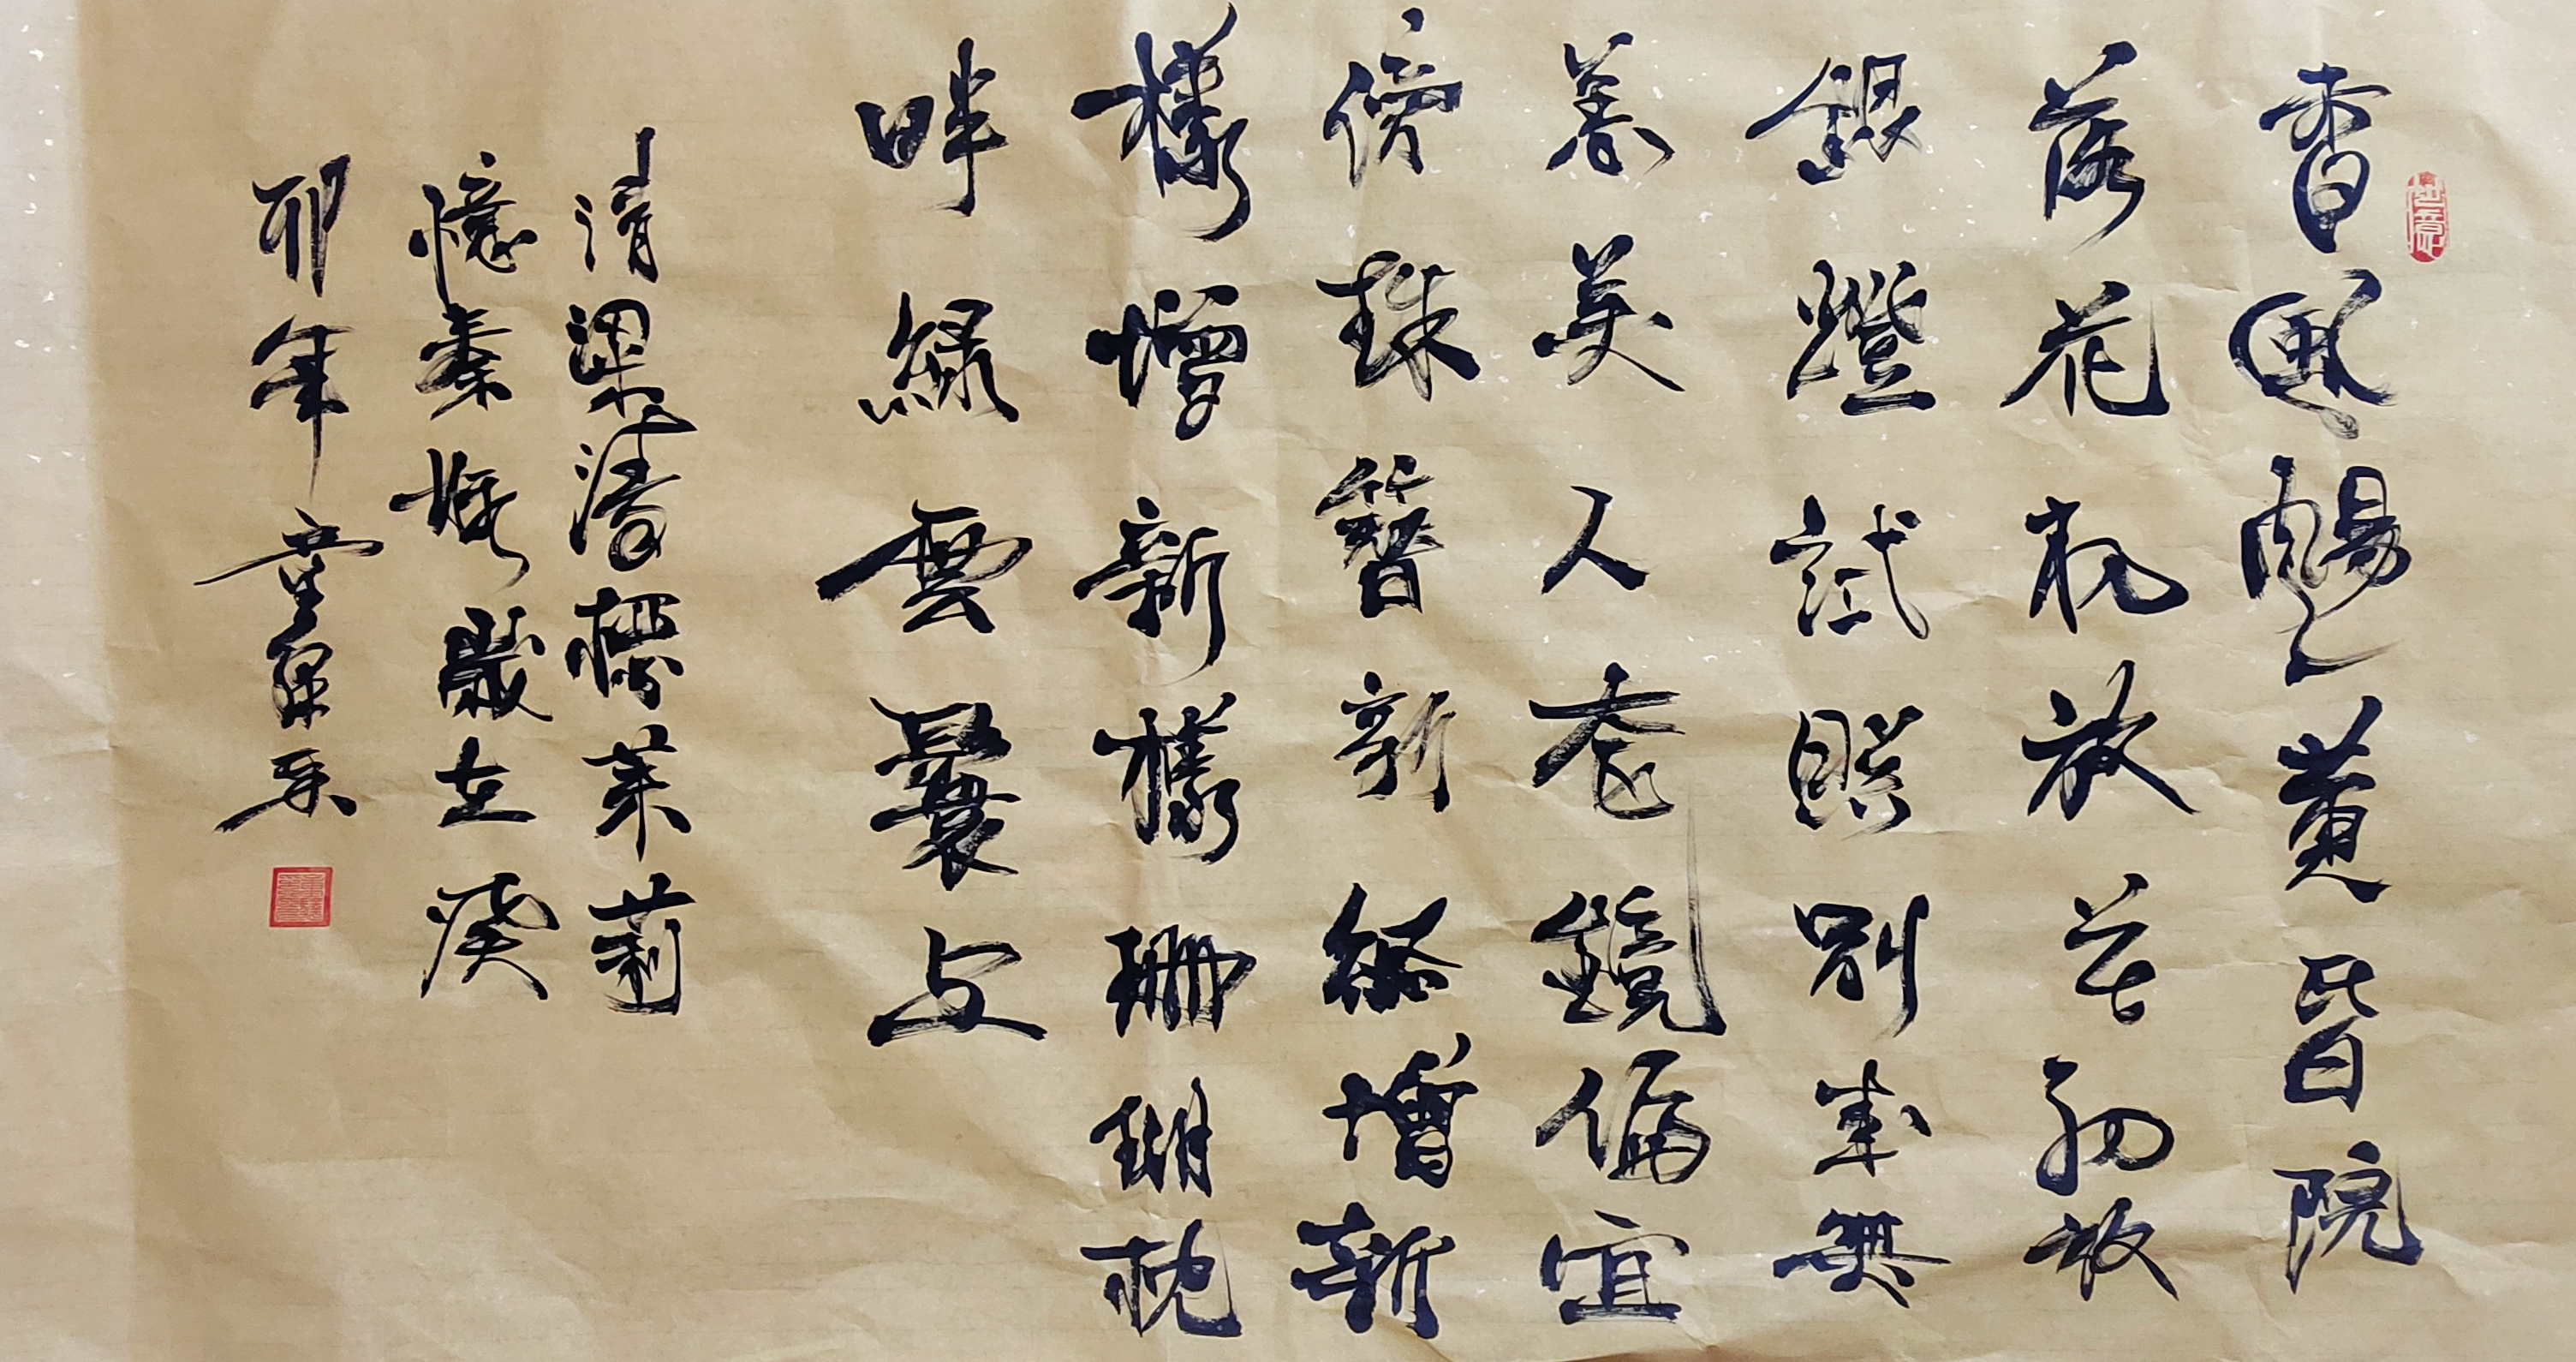 香風颺黃昏院
落花初放花初放
銀鐙試照別來無
恙美人奩鏡偏宜
傍珠簪新增新
樣增新樣珊瑚枕
畔綠雲鬟上
清梁清標茉莉
憶秦娥歲在癸
卯年